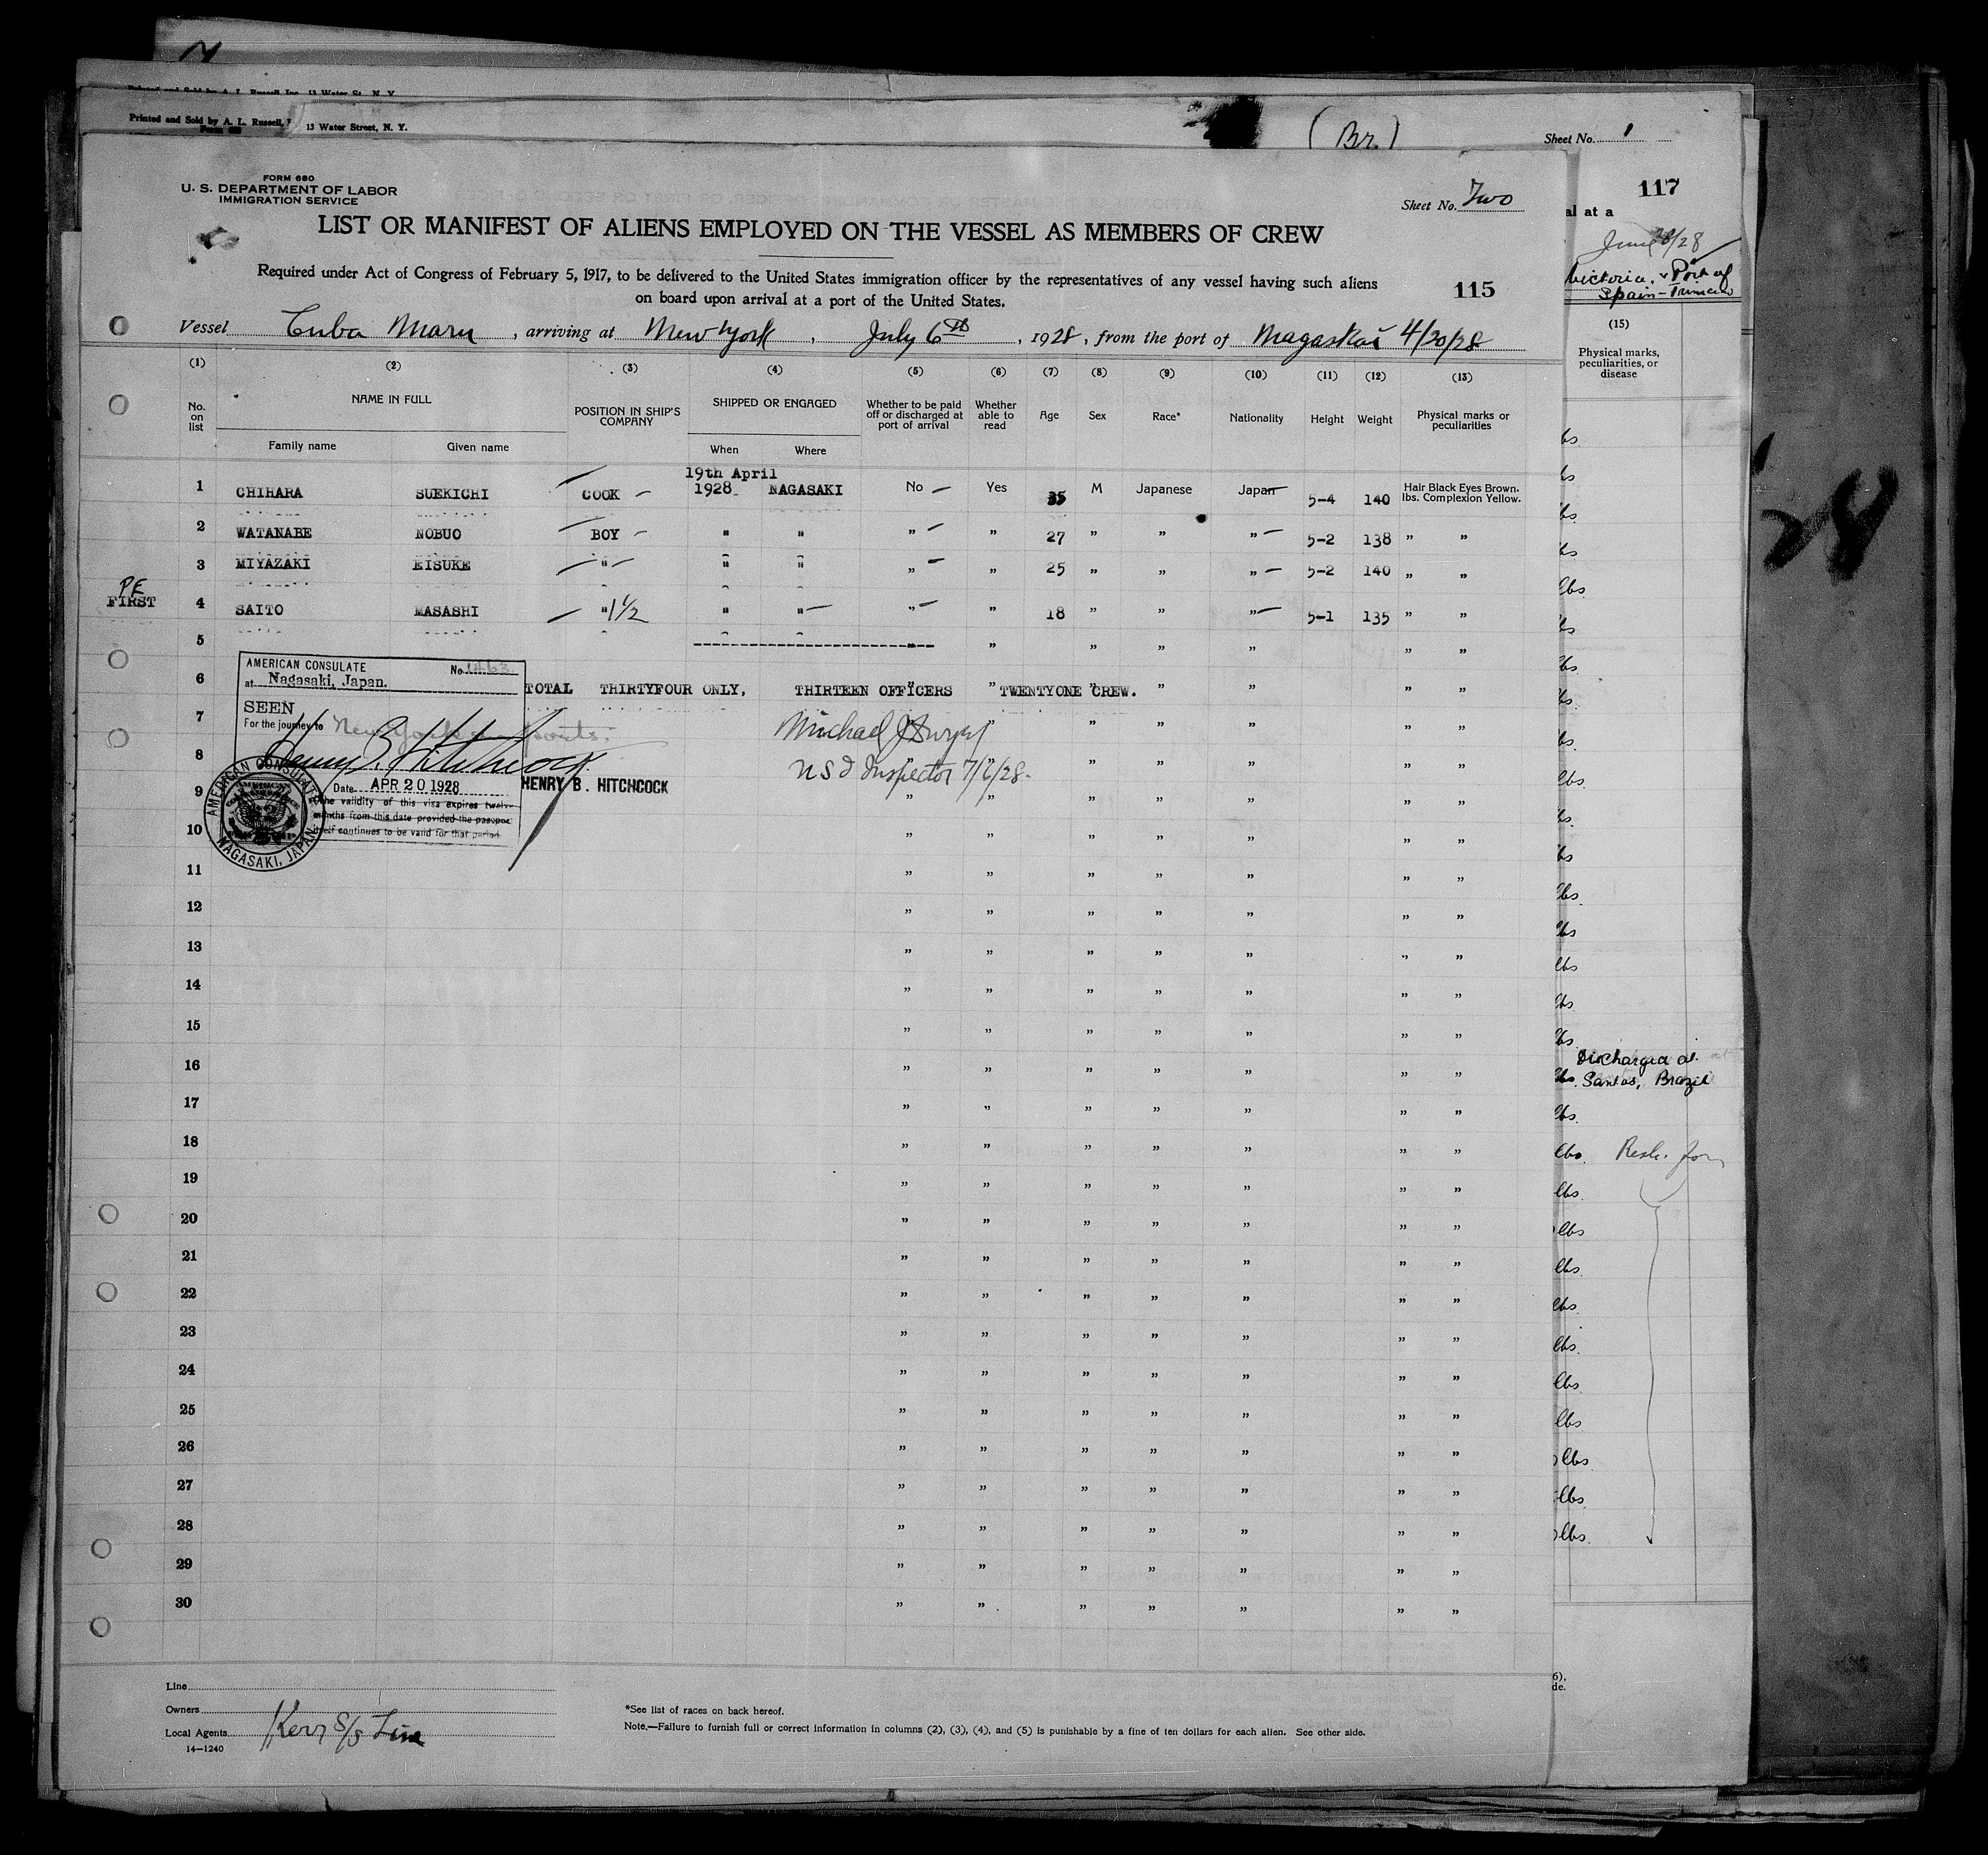 Printed and Sold by A. L. Russell, Inc., 13 Water St., N. Y.
Printed and Sold by A. L. Russell, 13 Water Street, N. Y.
(Br.)
Sheet No. 1
117
al at a
June 28/28
Victoria, Port of
Spain - Trinidad
(15)
Physical marks,
peculiarities, or
disease
FORM 680
U. S. DEPARTMENT OF LABOR
IMMIGRATION SERVICE
Sheet No. Two
LIST OR MANIFEST OF ALIENS EMPLOYED ON THE VESSEL AS MEMBERS OF CREW
Required under Act of Congress of February 5, 1917, to be delivered to the United States immigration officer by the representatives of any vessel having such aliens
on board upon arrival at a port of the United States.
115
Vessel Cuba Maru, arriving at New York, July 6th, 1928, from the port of Nagasaki 4/20/28
(1) (2) (3) (4) (5) (6) (7) (8) (9) (10) (11) (12) (13)
No. on list NAME IN FULL POSITION IN SHIP'S COMPANY SHIPPED OR ENGAGED Whether to be paid off or discharged at port of arrival Whether able to read Age Sex Race* Nationality Height Weight Physical marks or peculiarities
Family name Given name When Where
19th April
1 CHIHARA SUEKICHI COOK 1928 NAGASAKI No Yes 35 M Japanese Japan 5-4 140 lbs. Hair Black Eyes Brown. Complexion Yellow.
2 WATANABE NOBUO BOY " " " " 27 " " " 5-2 138 " "
3 MIYAZAKI EISUKE " " " " " 25 " " " 5-2 140 " "
PE
FIRST 4 SAITO MASASHI " 1 1/2 " " " " 18 " " " 5-1 135 " "
5 " " " " " " "
6 TOTAL THIRTYFOUR ONLY, THIRTEEN OFFICERS " TWENTYONE CREW. " " " "
7 " " " " " " "
8 " " " " " " "
9 " " " " " " "
10 " " " " " " "
11 " " " " " " "
12 " " " " " " "
13 " " " " " " "
14 " " " " " " "
15 " " " " " " "
16 " " " " " " "
17 " " " " " " "
18 " " " " " " "
19 " " " " " " "
20 " " " " " " "
21 " " " " " " "
22 " " " " " " "
23 " " " " " " "
24 " " " " " " "
25 " " " " " " "
26 " " " " " " "
27 " " " " " " "
28 " " " " " " "
29 " " " " " " "
30 " " " " " " "
AMERICAN CONSULATE No.
at Nagasaki, Japan.
SEEN
For the journey to New York
Henry B. Hitchcock
Date APR 20 1928
HENRY B. HITCHCOCK
The validity of this visa expires twelve
months from this date provided the passport
itself continues to be valid for that period.
AMERICAN CONSULATE
NAGASAKI, JAPAN
Michael J
Inspector 7/6/28.
Discharged at
Santos, Brazil
28
Line
Owners
Local Agents Kerr S/S Line
14—1240
*See list of races on back hereof.
Note.—Failure to furnish full or correct information in columns (2), (3), (4), and (5) is punishable by a fine of ten dollars for each alien. See other side.